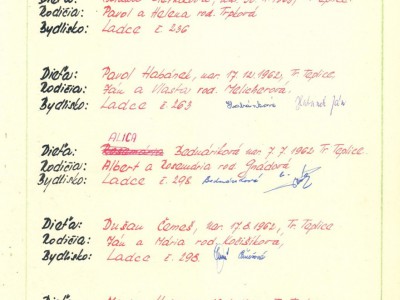 Rodičia: Pavol a Helena rod. Trpková
Bydlisko: Ladce č. 236
Dieťa: Pavol Habánek, nar. 17. 12. 1962, Tr. Teplice
Rodičia: Ján a Vlasta rod. Melicherová.
Bydlisko: Ladce č. 263 Habánková Habánek Ján
ALICA
Dieťa: Rozamária Bednáriková nar. 7. 7. 1962 Tr. Teplice
Rodičia: Albert a Rozamária rod. Gnádová.
Bydlisko: Ladce č. 298. Bednáriková
Dieťa: Dušan Čemeš, nar. 17. 8. 1962, Tr. Teplice
Rodičia: Ján a Mária rod. Košíšková,
Bydlisko: Ladce č. 298.
Dieťa: